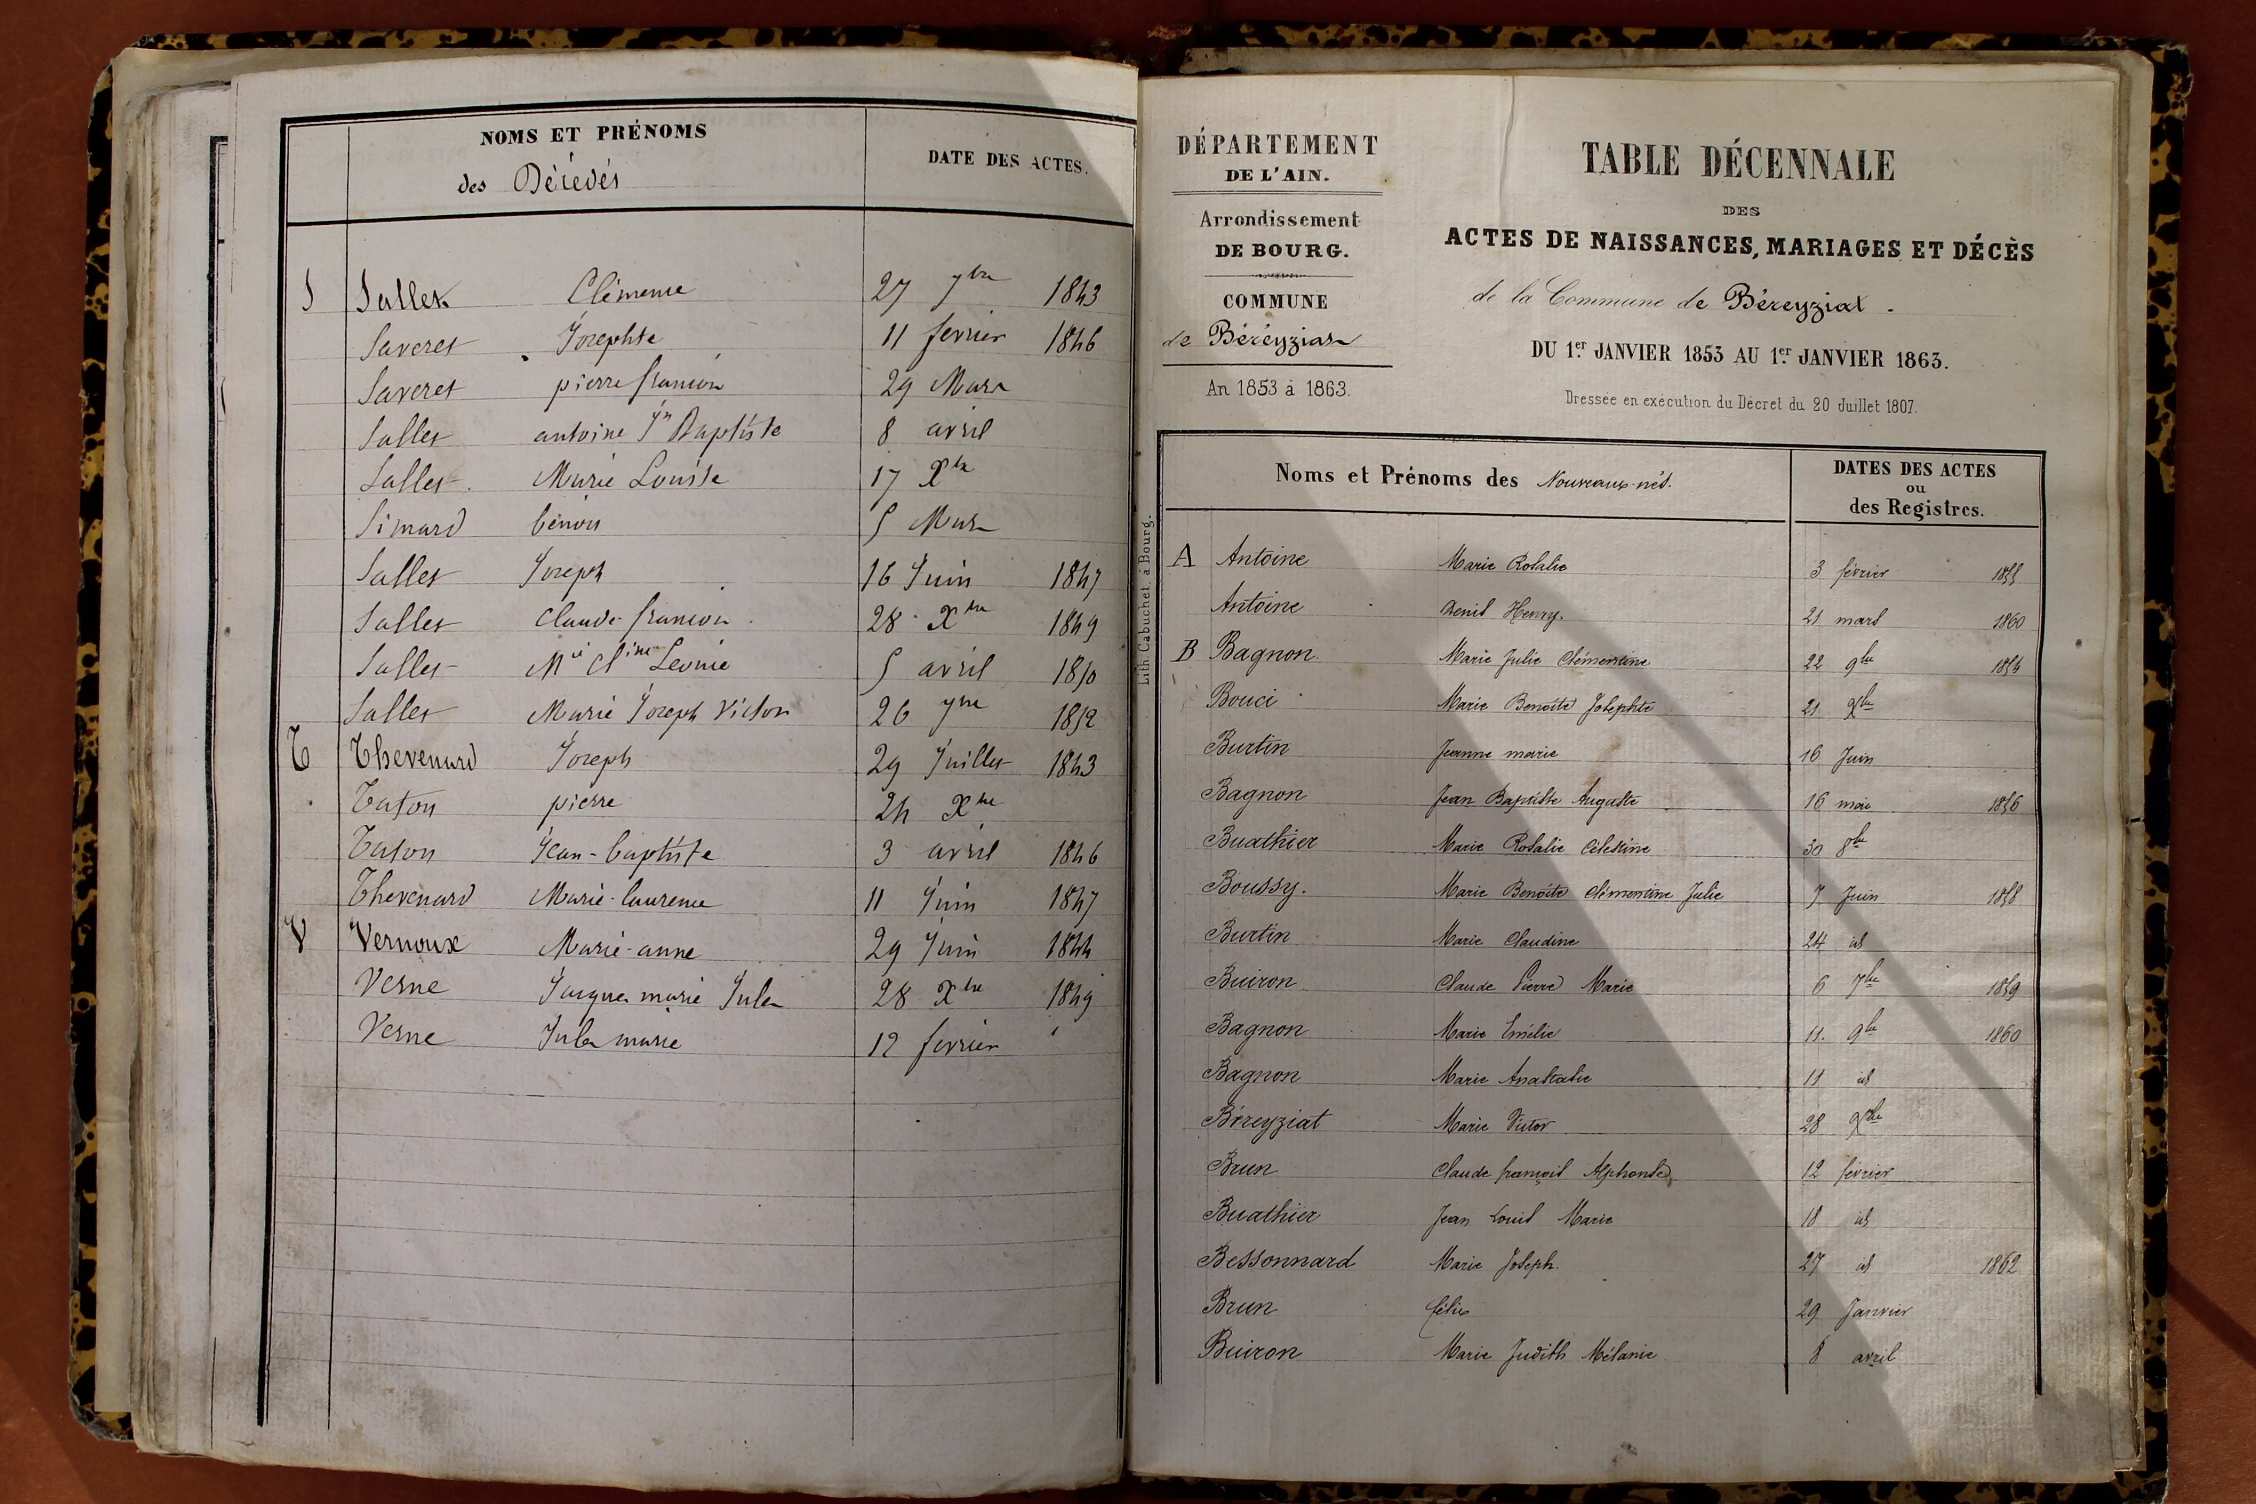 NOMS ET PRÉNOMS
des Décédés
DATE DES ACTES.
S Salles Clémence 27 7bre 1843
Saveret Josephte 11 fevrier 1846
Saveret pierre francois 29 Mars
Salles antoine Jn Baptiste 8 avril
Salles Marie Louise 17 Xbre
Simard benoit 5 Mars
Salles Joseph 16 Juin 1847
Salles Claude francois 28 Xbre 1849
Salles Mie Cl ine Leonie 5 avril 1850
Salles Marie Joseph Victor 26 7bre 1852
T Thevenard Joseph 29 Juillet 1843
Taton pierre 24 Xbre
Taton Jean-baptiste 3 avril 1846
Thevenard Marie-laurence 11 Juin 1847
V Vernoux Marie-anne 29 Juin 1844
Verne Jacques marie Jules 28 Xbre 1849
Verne Jules marie 12 fevrier
DÉPARTEMENT
DE L'AIN.
Arrondissement
DE BOURG.
COMMUNE
de Béréyziat
An 1853 à 1863.
TABLE DÉCENNALE
DES
ACTES DE NAISSANCES, MARIAGES ET DÉCÈS
de la Commune de Béreyziat.
DU 1er JANVIER 1853 AU 1er JANVIER 1863.
Dressée en exécution du Décret du 20 Juillet 1807.
Lith. Cabuchet, à Bourg.
Noms et Prénoms des Nouveaux-nés.
DATES DES ACTES
ou
des Registres.
A Antoine Marie Rosalie 3 février 1855
Antoine Denis Henry. 21 mars 1860
B Bagnon Marie Julie Clémentine 22 9bre 1854
Bouci Marie Benoite Josephte 21 Xbre
Burtin Jeanne marie 16 Juin
Bagnon Jean Baptiste Auguste 16 mai 1856
Buathier Marie Rosalie Célestine 30 8bre
Boussy. Marie Benoite Clémentine Julie 7 Juin 1858
Burtin Marie Claudine 24 id
Buiron Claude Pierre Marie 6 7bre 1859
Bagnon Marie Emélie 11. 9bre 1860
Bagnon Marie Anastasie 11 id
Béreyziat Marie Victor 28 Xbre
Brun Claude françois Alphonse 12 février
Buathier Jean Louis Marie 18 id
Bessonnard Marie Joseph. 27 id 1862
Brun félix 29 Janvier
Buiron Marie Judith Mélanie 8 avril